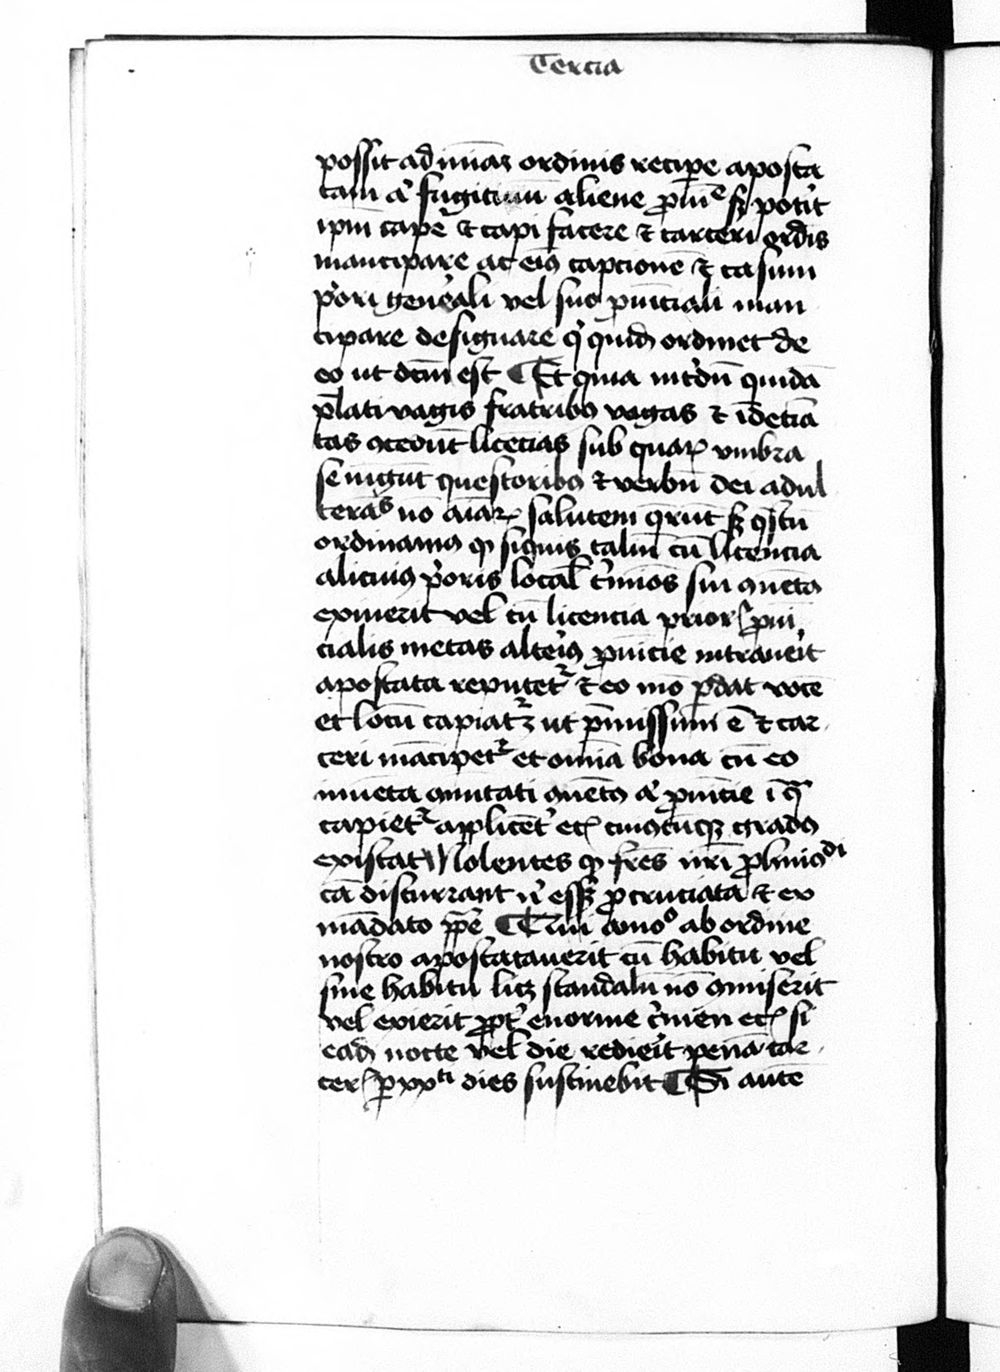 Tercia
possit ad miīas ordinis recipe aposta
tam aͥ fugitiuū aliene ꝓuīᵉ sꝫ potit
ipm cape ⁊ capi facere ⁊ carceri ordis
mancipare ac eiꝰ capcionē ⁊ casum
pͥori genͤali vel suo ꝓuīciali man
cipare designare qͥ quid ordinet de
eo ut dcm̄ est ¶ Et quia int̄dū quidā
p̄lati vagis fratribꝰ vagas ⁊ īdeciā
tas ꝯcedūt licēcias sub quaꝝ vmbra
se iūgūt questoribꝰ ⁊ verbū dei adul
terās nō aīaꝝ salutem q̄rūt sꝫ q̄stū
ordinamꝰ ꝙ siquis taliū cū licencia
alicuiꝰ pͥoris local tͥmīos sui ꝯuētꝰ
exiuerit vel cū licencia prioris ꝓuī
cialis metas alteiꝰ ꝓuīcie intrauerit
apostata reputetᷣ ⁊ eo īmo ꝑdat vocē
et locū capiatᷣ ut p̄missum ē ⁊ car
ceri mācipetᷣ et omīa bona cū eo
inuēta ꝯmutati ꝯuētꝰ aͥ ꝓuīcie ī qͣ
capietᷣ applicētᷣ etꝫ cuiuscūqꝫ gradꝰ
existat Nolentes ꝙ frēs nr̄i ꝓ huiꝰdi
cā discurrant nͥ essꝫ ꝓ cruciata ⁊ ex
mādato pp̄e ¶ Qui amō ab ordine
nostro apostatauerit cū habitu vel
sine habitu licꝫ scandalū nō ꝯmiserit
vel exierit ꝓpt̄ enorme cͥmen etꝫ si
eadē nocte vel die redierit penā car
ceris ꝑ xxᵗⁱ dies sustinebit ¶ Si autē